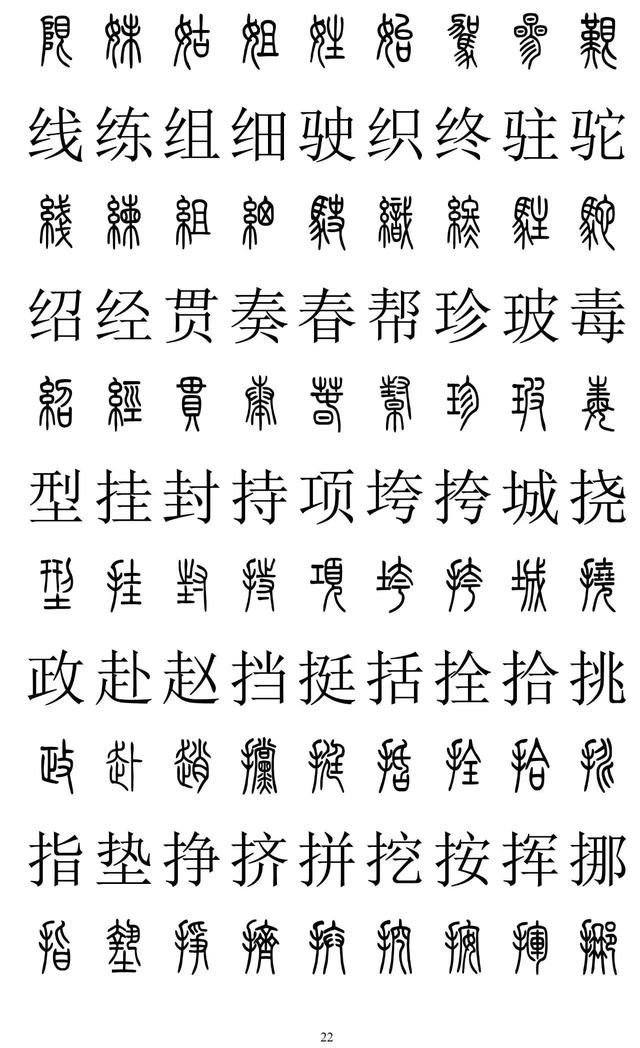 限 妹 姑 姐 姓 始 駕 參 艱
线 练 组 细 驶 织 终 驻 驼
綫 練 組 細 駛 織 終 駐 駝
绍 经 贯 奏 春 帮 珍 玻 毒
紹 經 貫 奏 春 幫 珍 玻 毒
型 挂 封 持 项 垮 挎 城 挠
型 挂 封 持 項 垮 挎 城 撓
政 赴 赵 挡 挺 括 拴 拾 挑
政 赴 趙 攩 挺 括 拴 拾 挑
指 垫 挣 挤 拼 挖 按 挥 挪
指 墊 掙 擠 拼 挖 按 揮 挪
22